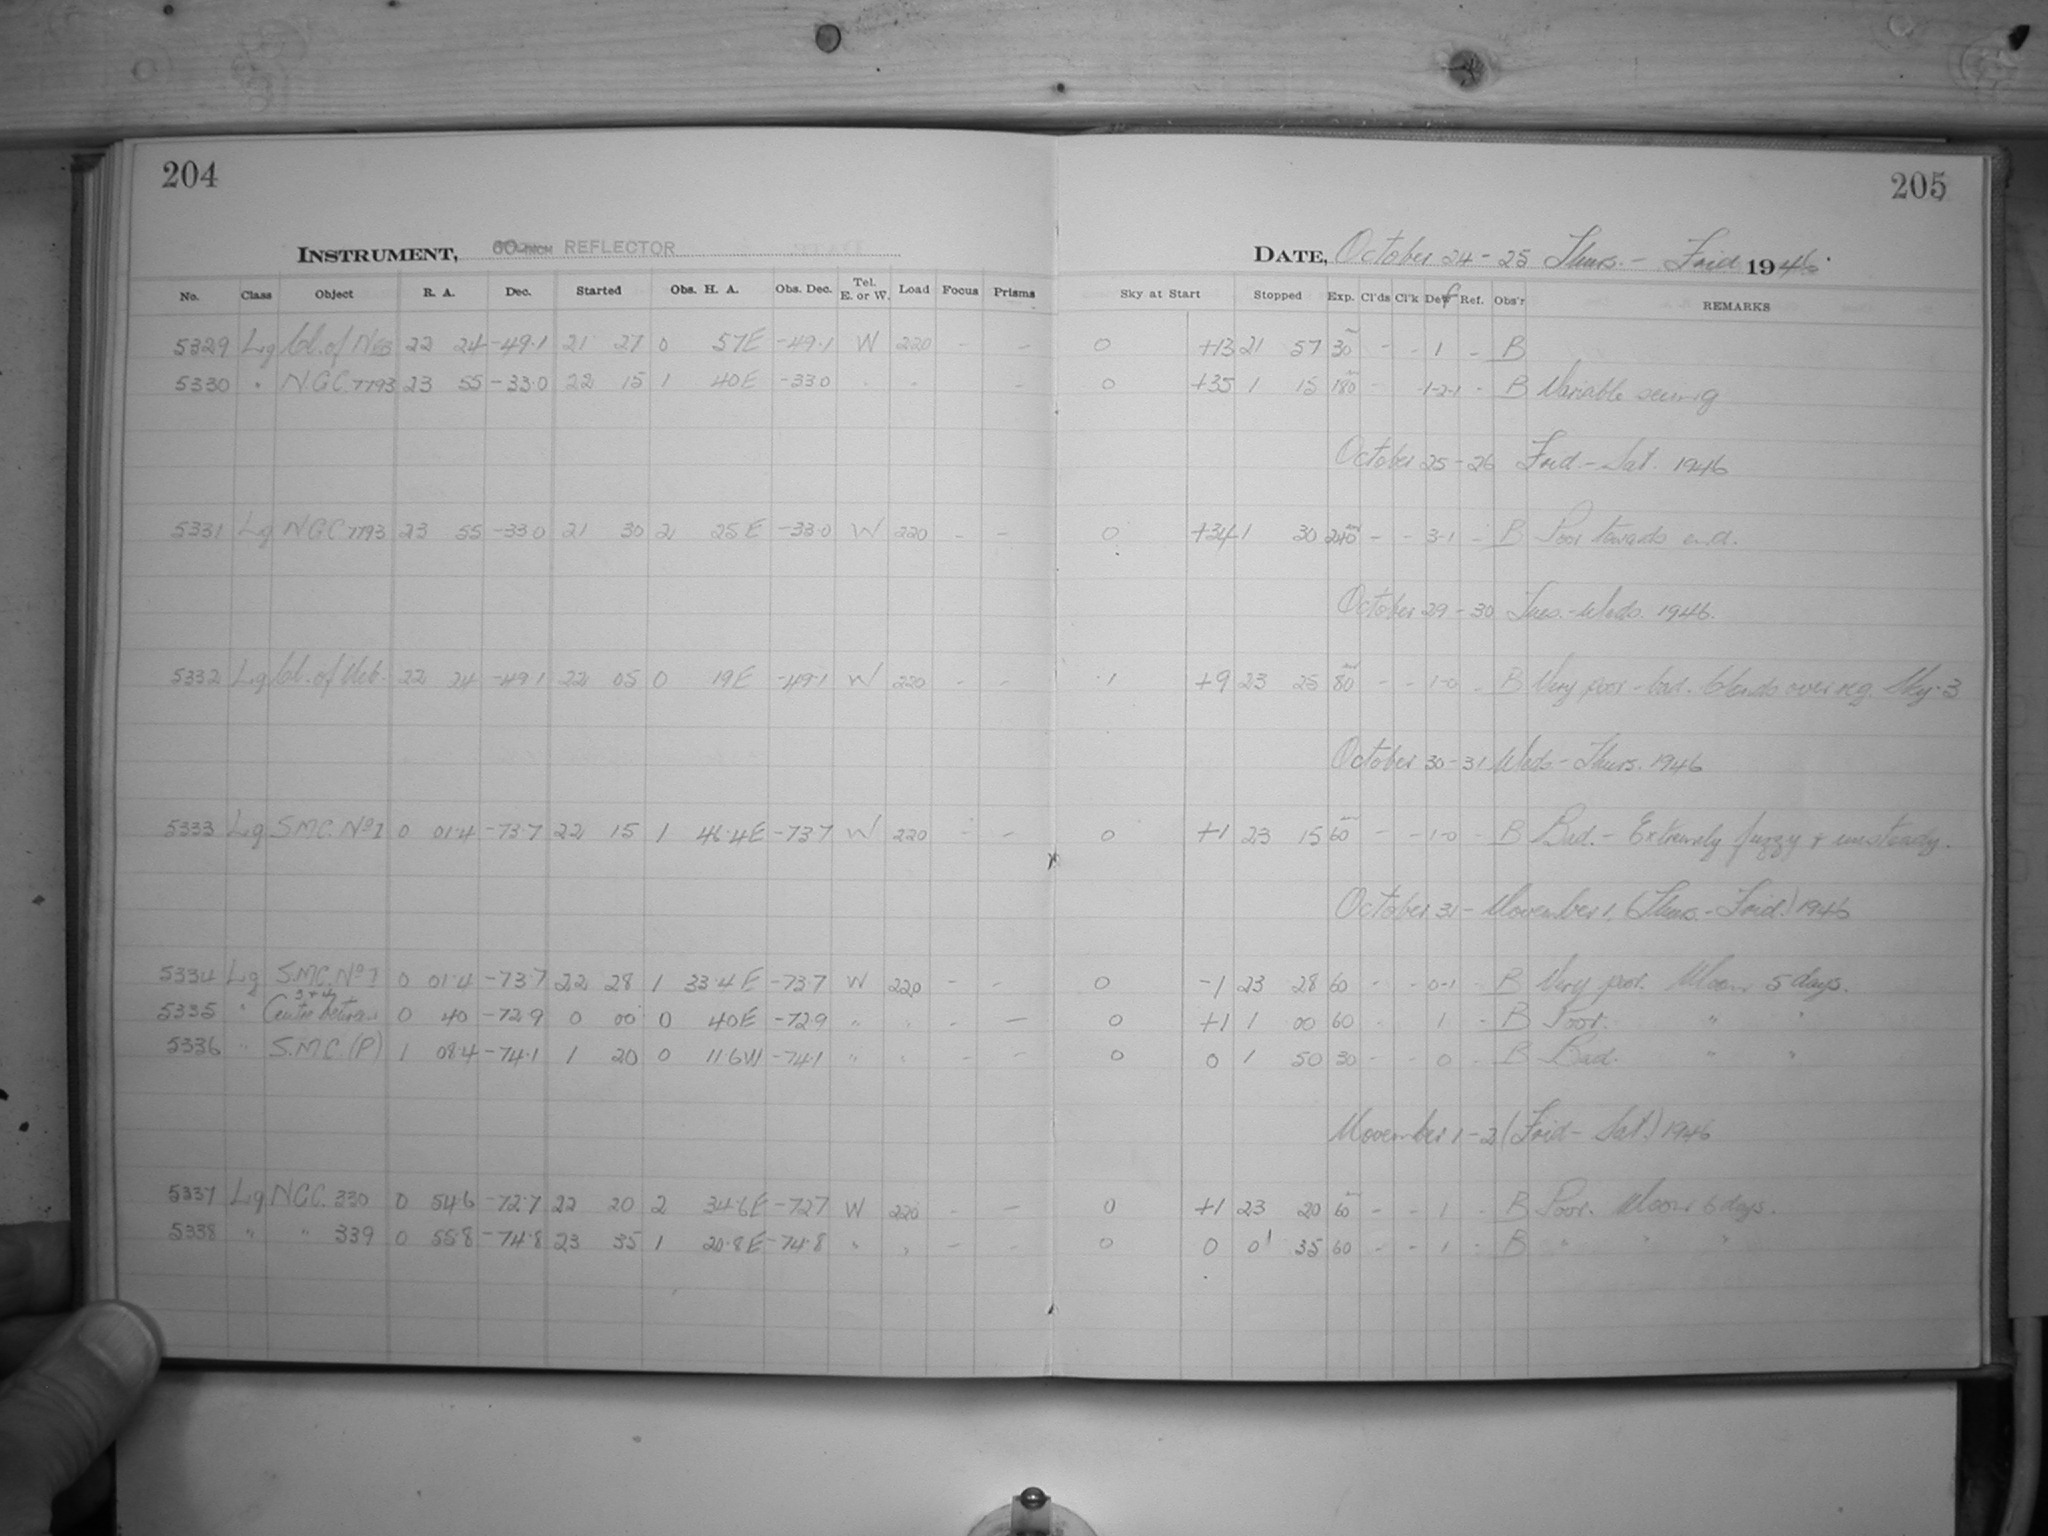 204
205
INSTRUMENT, 60-INCH REFLECTOR
DATE, October 24 - 25 Thurs. - Frid. 1946.
No. Class Object R. A. Dec. Started Obs. H. A. Obs. Dec. Tel. E. or W. Load Focus Prisms Sky at Start Stopped Exp. Cl'ds Cl'k Def Ref. Obs'r REMARKS
5329 Lg Cl. of Neb 22 24 -49.1 21 27 0 57E -49.1 W 220 - - 0 +13 21 57 30 - - 1 - B
5330 " NGC 7793 23 55 -33.0 22 15 1 40E -33.0 " " - 0 +35 1 15 180 - 1-2-1 - B Variable seeing
October 25 - 26 Frid. - Sat. 1946
5331 Lg NGC 7793 23 55 -33.0 21 30 2 25E -33.0 W 220 - - 0 +34 1 30 240 - - 3-1 - B Poor towards end.
October 29 - 30 Tues. - Weds. 1946.
5332 Lg Cl. of Neb. 22 24 -49.1 22 05 0 19E -49.1 W 220 - - 1 +9 23 25 80 - - 1-0 - B Very poor - Clouds over reg. Sky 3
October 30 - 31 Weds - Thurs. 1946
5333 Lg S.M.C. No 1 0 01.4 -73.7 22 15 1 46.4E -73.7 W 220 - - 0 +1 23 15 60 - - 1-0 - B Bad. - Extremely fuzzy & unsteady.
October 31 - November 1, (Thurs. - Frid.) 1946
5334 Lg S.M.C. No 1 0 01.4 -73.7 22 28 1 33.4E -73.7 W 220 - - 0 -1 23 28 60 - - 0-1 - B Very poor. Moon 5 days.
5335 " Centre between 3 + 4 0 40 -72.9 0 00 0 40E -72.9 " " - - 0 +1 1 00 60 - 1 - B Poor. " "
5336 " S.M.C (P) 1 08.4 -74.1 1 20 0 11.6W -74.1 " " - - 0 0 1 50 30 - - 0 - B Bad. " "
November 1 - 2 (Frid - Sat.) 1946
5337 Lg NGC. 330 0 54.6 -72.7 22 20 2 34.6E -72.7 W 220 - - 0 +1 23 20 60 - - 1 - B Poor. Moon 6 days.
5338 " " 339 0 55.8 -74.8 23 35 1 20.8E -74.8 " " - - 0 0 0 35 60 - - 1 - B " " "